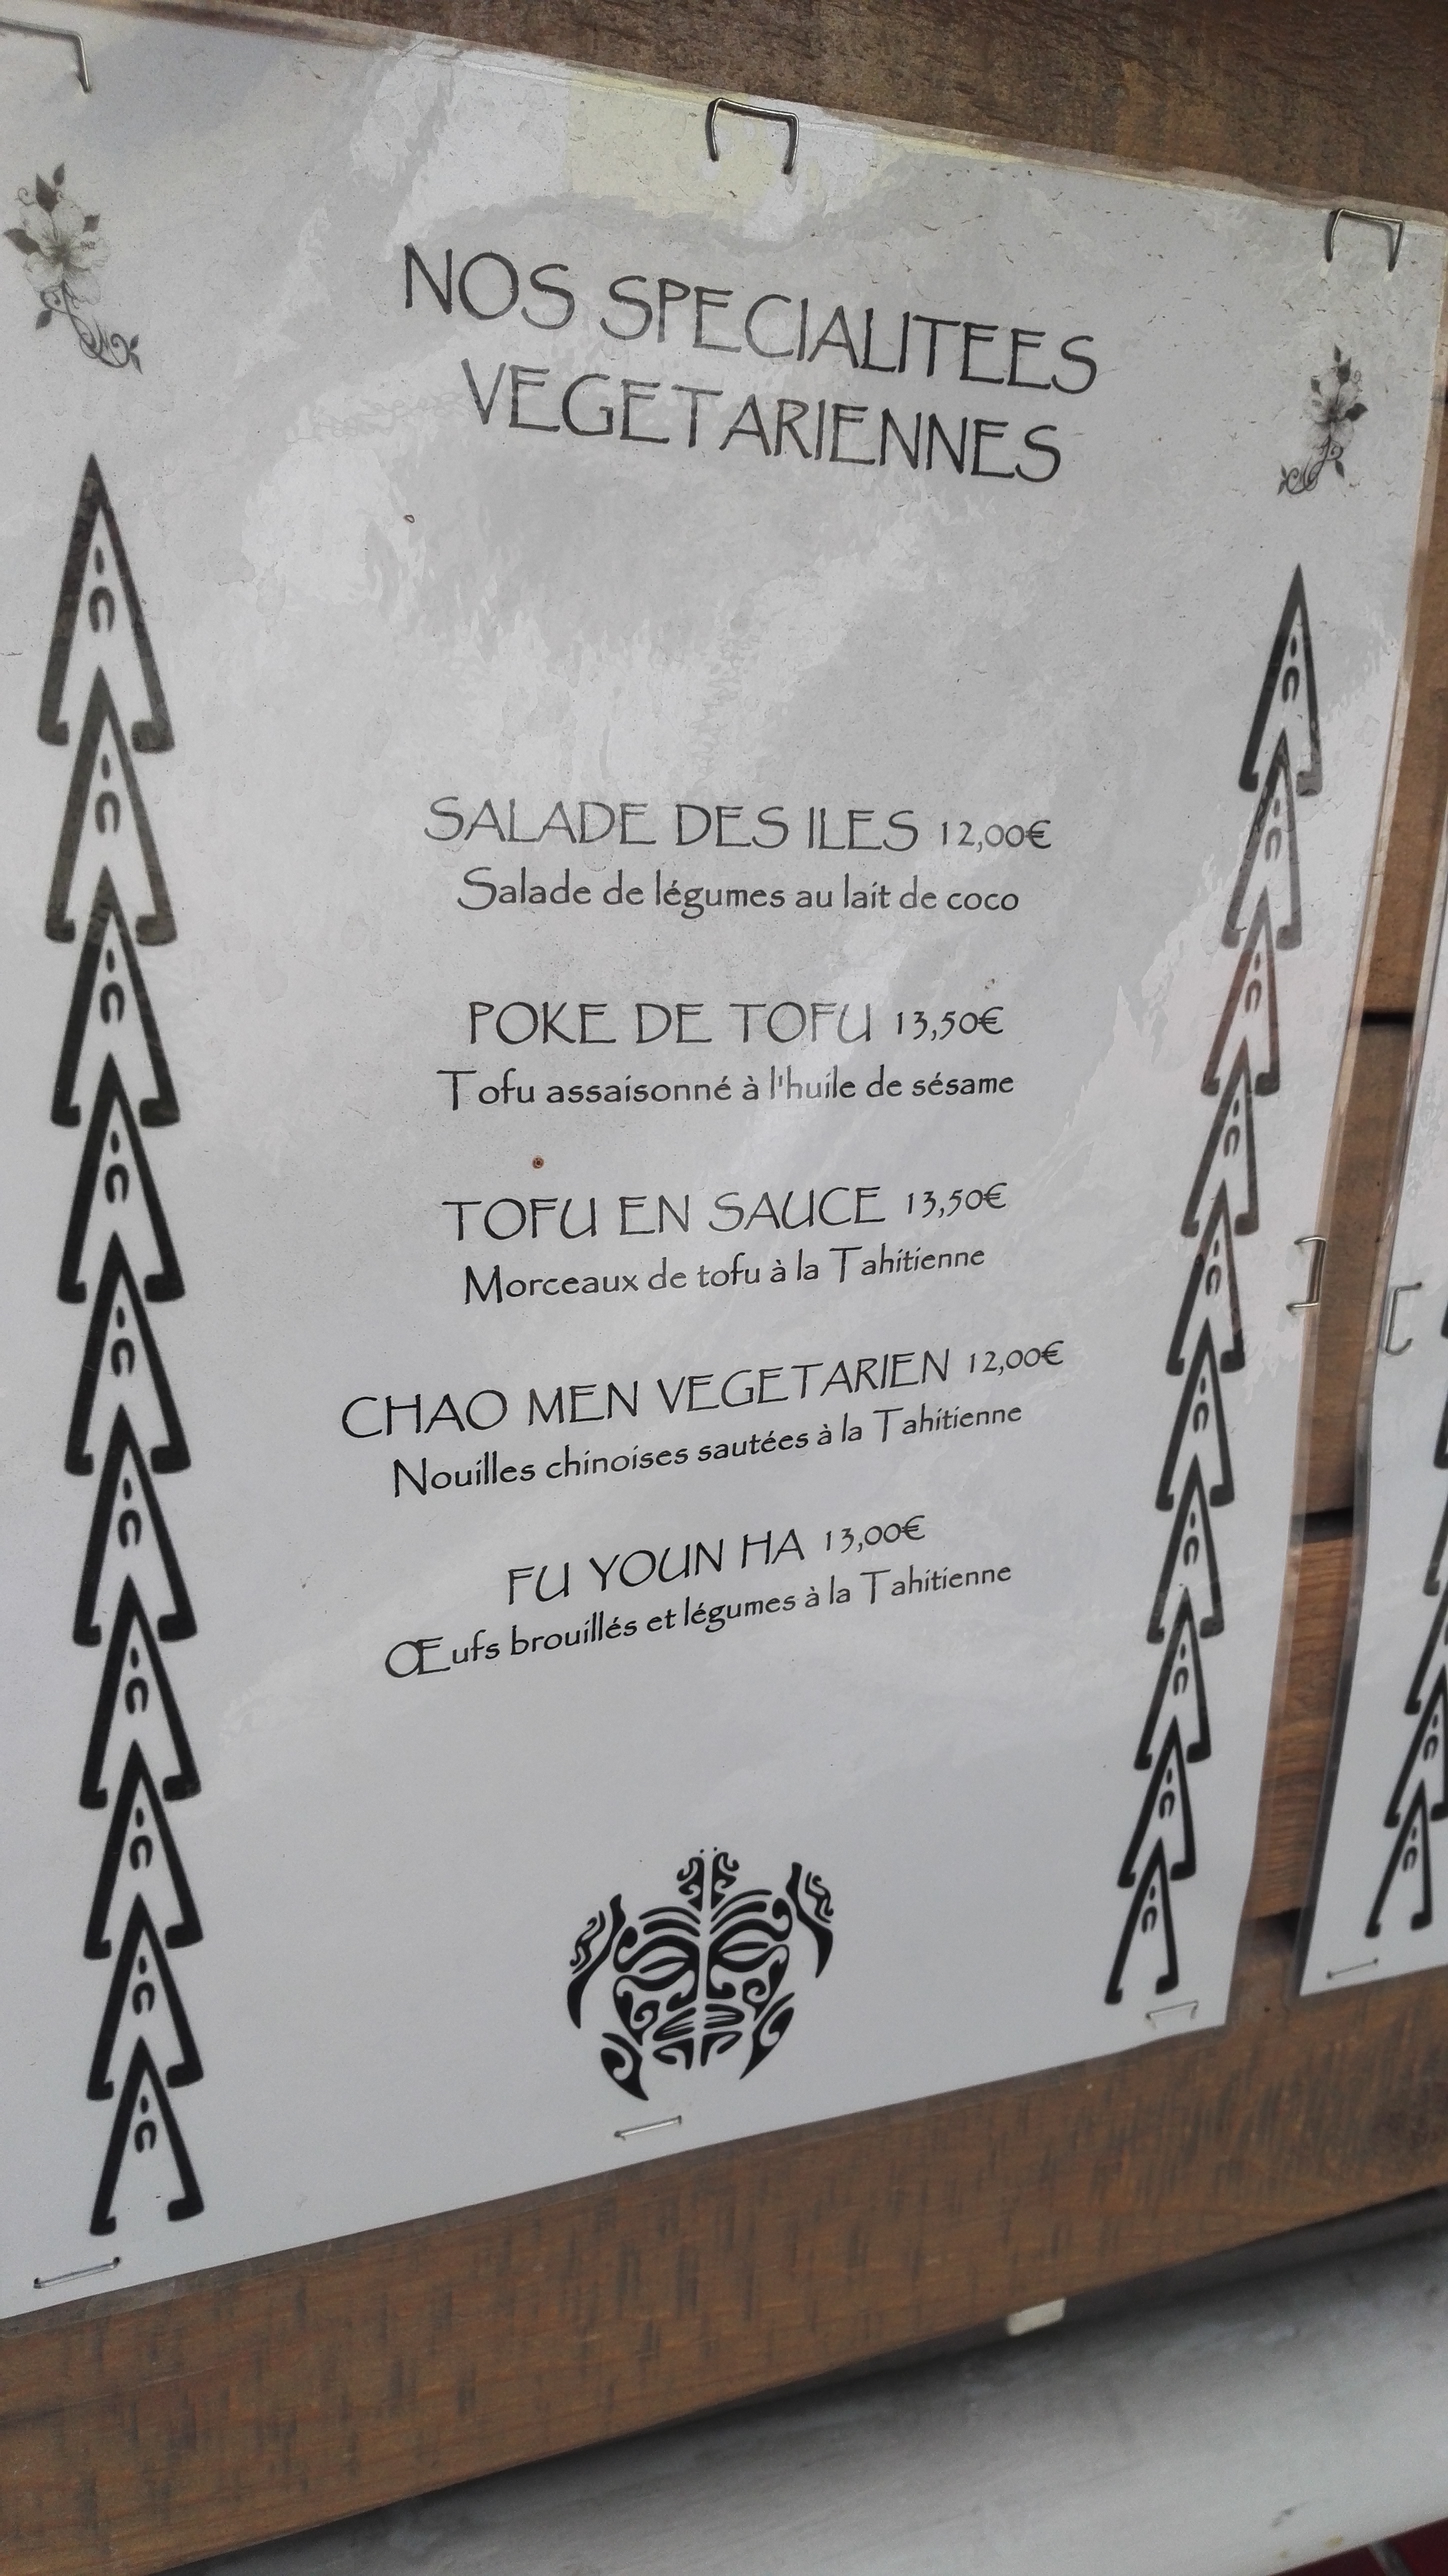 NOS SPECIALITEES
VEGETARIENNES
SALADE DES ILES 12,00€
Salade de légumes au lait de coco
POKE DE TOFU 13,50€
Tofu assaisonné à l'huile de sésame
TOFU EN SAUCE 13,50€
Morceaux de tofu à la Tahitienne
CHAO MEN VEGETARIEN 12,00€
Nouilles chinoises sautées à la Tahitienne
FU YOUN HA 13,00€
Œufs brouillés et légumes à la Tahitienne